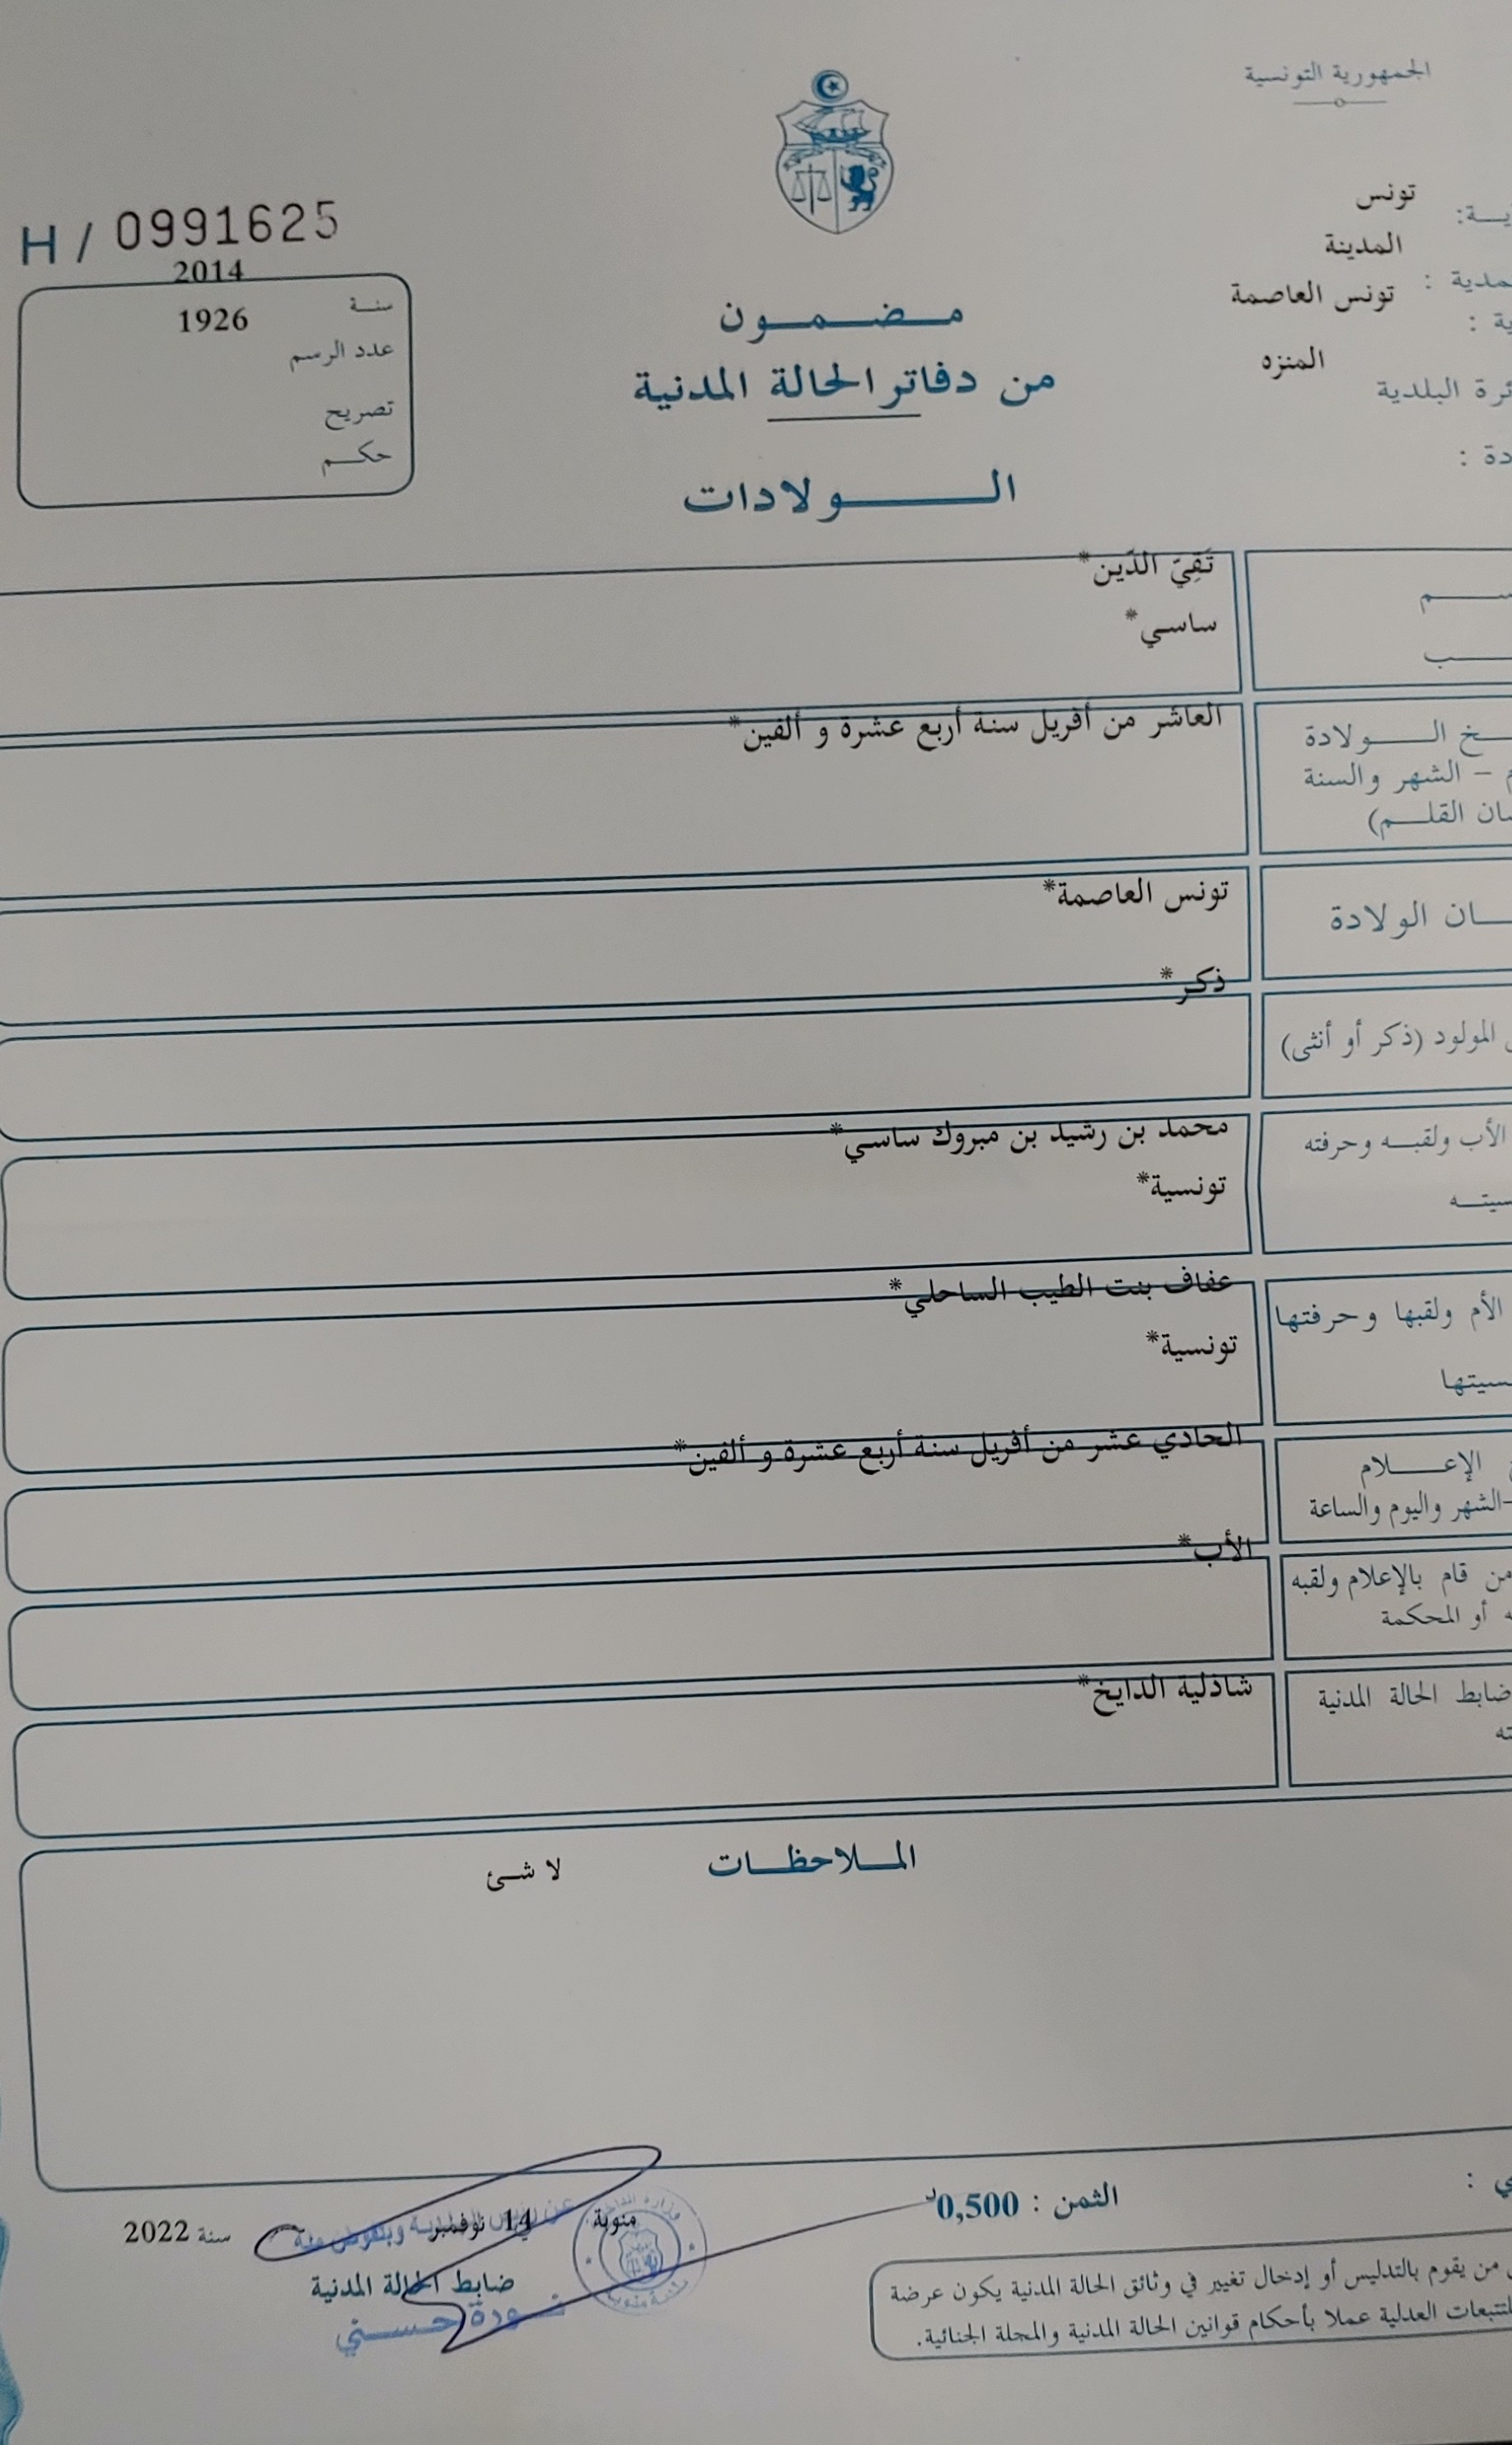 الجمهورية التونسية
تونس
المدينة
تونس العاصمة
المنزه
البلدية
H / 0991625
2014
سنة
1926
عدد الرسم
تصريح
حكم
مضمون
من دفاتر الحالة المدنية
الولادات
تَقِيّ الدّين*
ساسي*
الولادة
العاشر من أفريل سنة أربع عشرة و ألفين*
– الشهر والسنة
القلم)
الولادة
تونس العاصمة*
ذكر*
المولود (ذكر أو أنثى)
الأب ولقبه وحرفته
محمد بن رشيد بن مبروك ساسي*
تونسية*
الأم ولقبها وحرفتها
عفاف بنت الطيب الساحلي*
تونسية*
الإعلام
الحادي عشر من أفريل سنة أربع عشرة و ألفين*
-الشهر واليوم والساعة
من قام بالإعلام ولقبه
الأب*
أو المحكمة
ضابط الحالة المدنية
شاذلية الدايخ*
الملاحظات
لا شئ
الثمن : 0,500د
منوبة 14 نوفمبر سنة 2022
ضابط الحالة المدنية
حسني
من يقوم بالتدليس أو إدخال تغيير في وثائق الحالة المدنية يكون عرضة
للتتبعات العدلية عملا بأحكام قوانين الحالة المدنية والمجلة الجنائية.